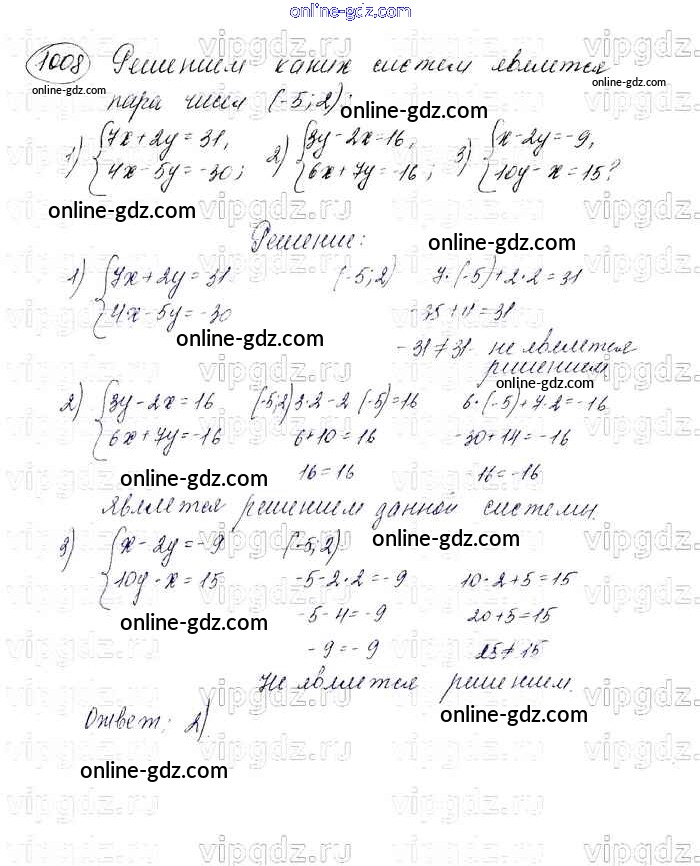 online-gdz.com
1008 Решением каких систем является
пара чисел (-5; 2):
1) {7x+2y=31, 2) {3y-2x=16, 3) {x-2y=-9,
4x-5y=-30; 6x+7y=-16; 10y-x=15?
Решение:
1) {7x+2y=31 (-5; 2) 7·(-5)+2·2=31
4x-5y=-30 -35+4=31
-31≠31. не является
решением
2) {3y-2x=16 (-5;2) 3·2-2(-5)=16 6·(-5)+7·2=-16
6x+7y=-16 6+10=16 -30+14=-16
16=16 -16=-16
является решением данной системы.
3) {x-2y=-9 (-5; 2)
10y-x=15 -5-2·2=-9 10·2+5=15
-5-4=-9 20+5=15
-9=-9 25≠15
Не является решением.
Ответ: 2).
online-gdz.com
online-gdz.com
online-gdz.com
online-gdz.com
online-gdz.com
online-gdz.com
online-gdz.com
online-gdz.com
online-gdz.com
online-gdz.com
online-gdz.com
online-gdz.com
vipgdz.ru